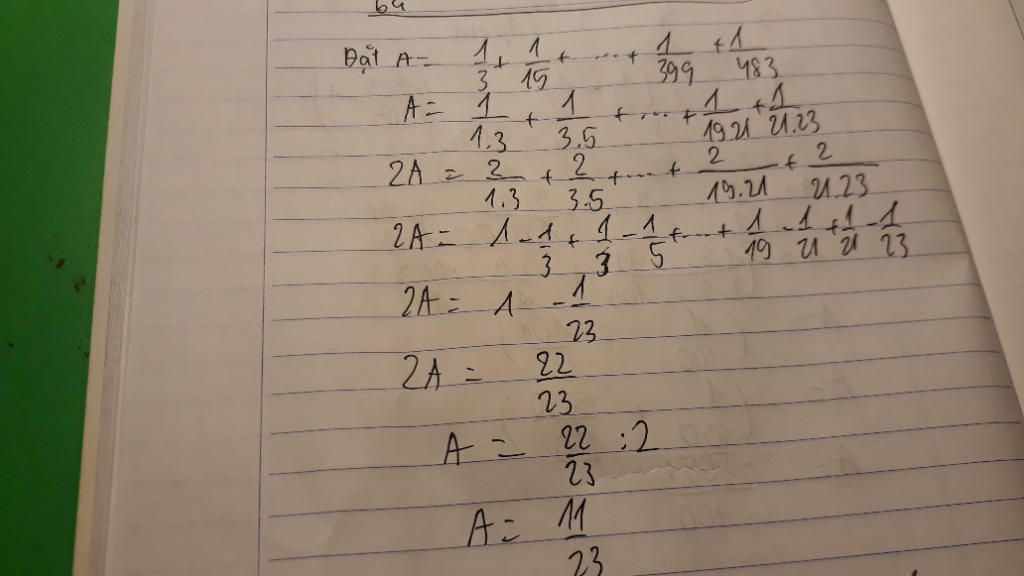 64
Đặt A = 1/3 + 1/15 + ... + 1/399 + 1/483
A = 1/1.3 + 1/3.5 + ... + 1/19.21 + 1/21.23
2A = 2/1.3 + 2/3.5 + ... + 2/19.21 + 2/21.23
2A = 1 - 1/3 + 1/3 - 1/5 + ... + 1/19 - 1/21 + 1/21 - 1/23
2A = 1 - 1/23
2A = 22/23
A = 22/23 : 2
A = 11/23